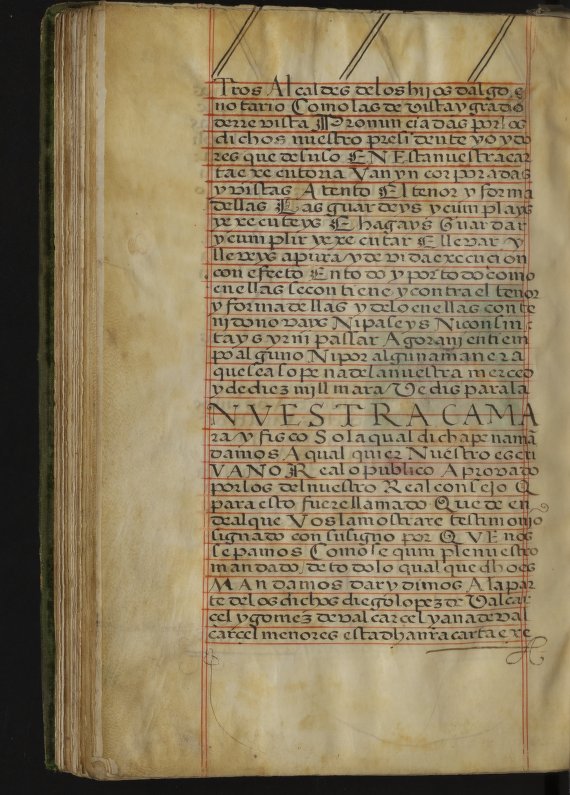 Tros Alcaldes delos hijos dalgo, e
notario Como las de vista y grado
de rre vista Pronunciadas por los
dichos nuestro presidente yoydo
res que desuso EN Esta nuestra car
ta exe xecutoria Van yn corporadas
y vistas Atento El tenor y forma
dellas Las guardeys y cumplays
ye xecuteys E hagays Guardar
y cumplir y exe cutar E llevar y
lleveys apura y de vida execucion
con efecto En todo y por todo como
en ellas se contiene y contra el tenor
y forma dellas y delo en ellas conte
nido no vays Nipaseys Ni consin
tays yr ni passar Agora ni en tiem
po alguno Ni por alguna manera
que sea so pena de la nuestra merced
y de diez mill mara Vedis para la
NVESTRA CAMA
ra y fisco So la qual dicha pena man
damos A qual quier Nuestro escri
VANO Real o publico Aprovado
por los del nuestro Real consejo Q
para esto fuere llamado Que de en
de al que Vos la mostrare testimonio
signado con su signo por QVE nos
sepamos Como se cumple nuestro
mandado, de todo lo qual que dho es
MAndamos dar y dimos A la par
te de los dichos diego lopez de Valcar
cel y gomez de val carcel y ana de val
carcel menores esta dha nra carta exe